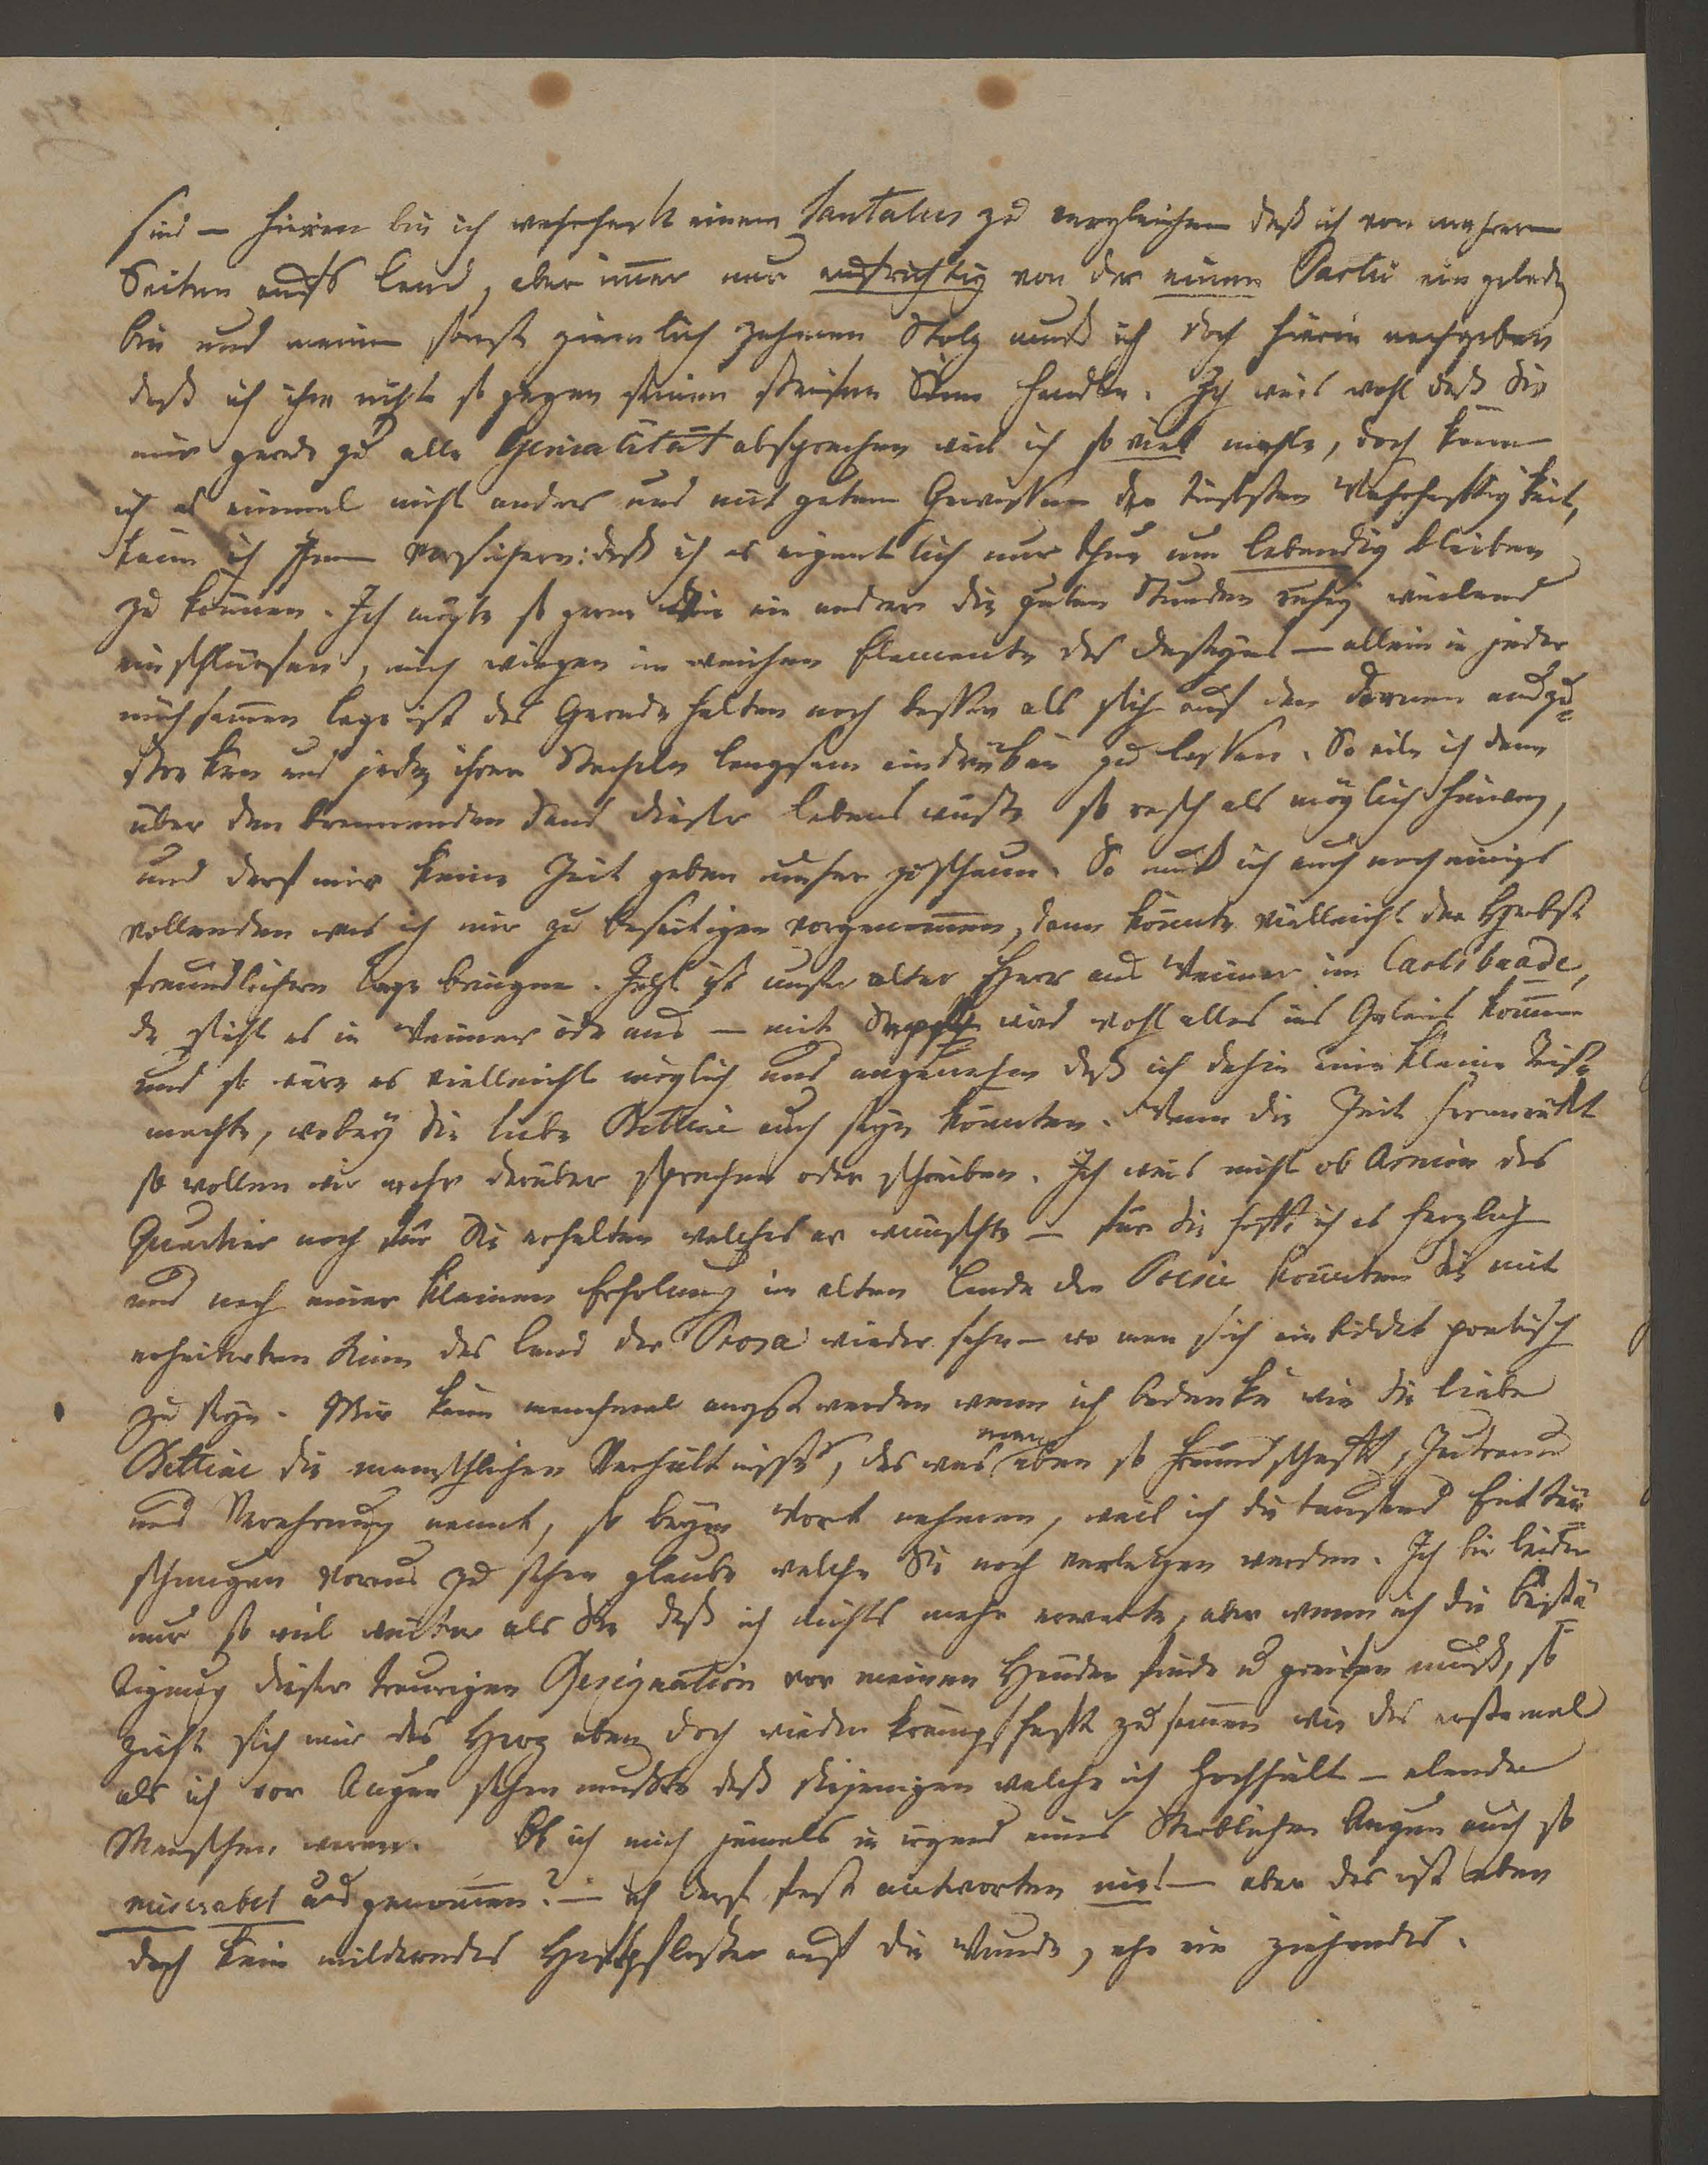 sind – hierin bin ich wahrhaft einem Tantalus zu vergleichen daß ich von mehrern
Seiten aufs Land, aber im̅er nur aufrichtig von der einen Partie ein gelade
bin und meinem sonst ziemlich zahmen Stolz muß ich doch hierin nachgeben
daß ich ihm nicht so gegen seinen steifen Sinn handle. Ich weis wohl daß Sie
mir gerade zu alle Genialität absprechen weil ich so viel mahle, doch kann
ich es einmal nicht anders und mit gutem Gewissen der tiefsten Wahrhaftigkeit,
kann ich Ihnen versichern: daß ich es eigentlich nur thue um lebendig bleiben
zu können. Ich mögte so gern wie ein andrer die guten Stunden ruhig weilend
einschlürfen, mich wiegen im weichen Elemente des Daseyns – allein in jeder
mühsamen Lage ist das Gerade halten noch besser als sich auf den Dornen auszu=
strecken und jeden ihrer Stacheln langsam eindrücken zu lassen. So eile ich denn
über den brennenden Sand dieser Lebens wüste so rasch als möglich hinweg,
und darf mir keine Zeit geben umher zu schaun. So muß ich auch noch einiges
vollenden was ich mir zu beseitigen vorgenom̅en, dann könnte vielleicht der Herbst
freundlichere Tage bringen. Jetzt ist unser alter Herr aus Weimar im Carlsbaade,
da sieht es in Weimar öde aus – mit wird wohl alles ins Geleis kom̅en
und so wäre es vielleicht möglich und angenehm daß ich dahin eine kleine Reise
machte, wobey Sie liebe Bettine auch seyn könnten. Wenn die Zeit heranrückt
so wollen wir mehr darüber sprechen oder schreiben. Ich weis nicht ob Arnim das
Quartier noch für Sie erhalten welches er wünschte – für Sie hoffe ich es herzlich
und nach einer kleinen Erholung im alten Lande der Poesie könnten Sie mit
erheiterten Sinn das Land der Prosa wieder sehn – wo man sich einbildet poetisch
zu seyn. Mir kann manchmal angst werden wenn ich bedenke wie die liebe
Bettine die menschlichen Verhältnisse, das was man eben so Freundschaft, Zutraun
und Verehrung nennt, so beym Wort nehmen, weil ich die tausend Enttäu=
schungen voraus zu sehen glaube welche Sie noch verletzen werden. Ich bin leider
nur so viel weiter als Sie daß ich nichts mehr erwarte, aber wenn ich die Bestä=
tigung dieser traurigen Resignation vor meinen Händen finde u greifen muß, so
zieht sich mir das Herz eben doch wieder krampfhaft zusam̅en wie das erstemal
als ich vor Augen sehen mußte daß diejenigen welche ich hochhielt – elende
Menschen waren. Ob ich mich jemals in irgend eines Sterblichen Augen auch so
miserabel ausgenom̅en? – ich darf fest antworten nie! – aber das ist eben
doch kein milderndes Heftpflaster auf die Wunde, ehe ein ziehendes.